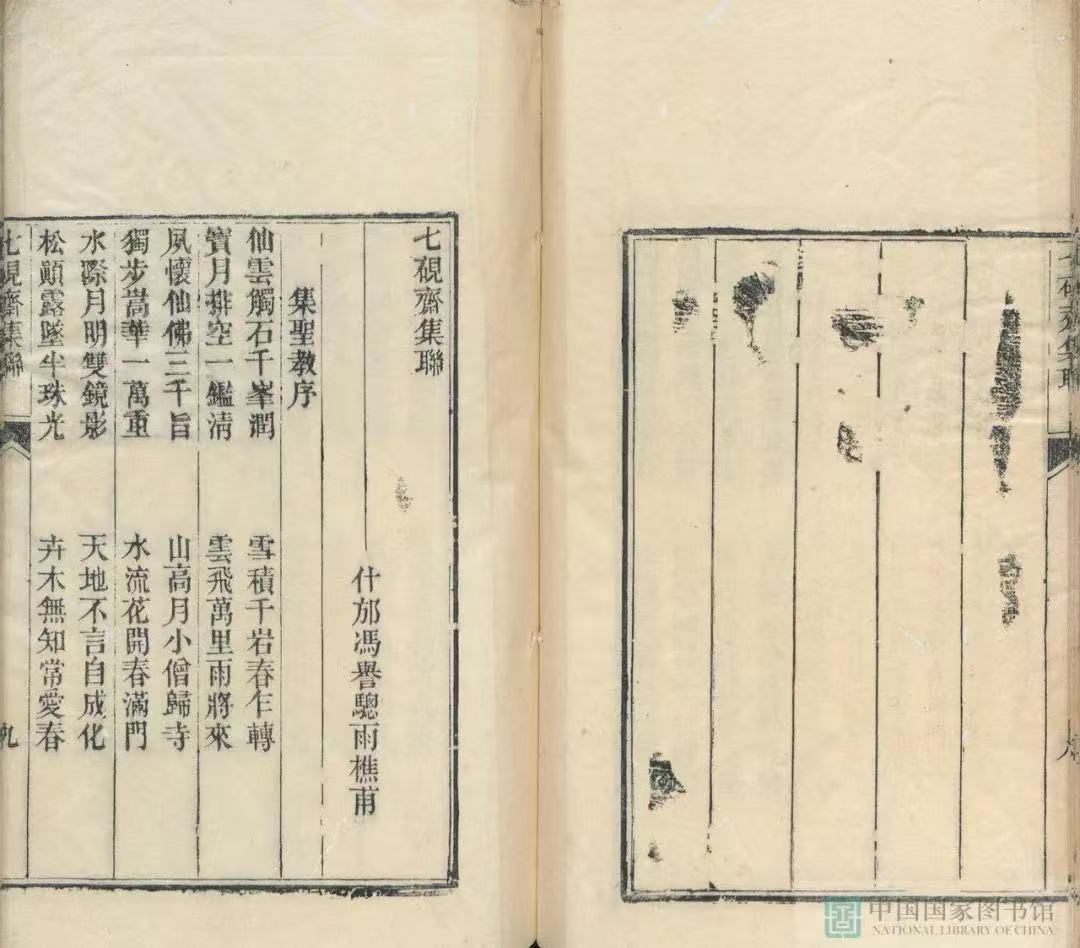 七硯齋集聯
八
七硯齋集聯
什邡馮譽驄雨樵甫
集聖教序
仙雲觸石千峯潤　雪積千岩春乍轉
寶月排空一鑑淸　雲飛萬里雨將來
夙懷仙佛三千旨　山高月小僧歸寺
獨步嵩華一萬重　水流花開春滿門
水際月明雙鏡影　天地不言自成化
松巔露墜半珠光　卉木無知常愛春
七硯齋集聯
九
中国国家图书馆
NATIONAL LIBRARY OF CHINA